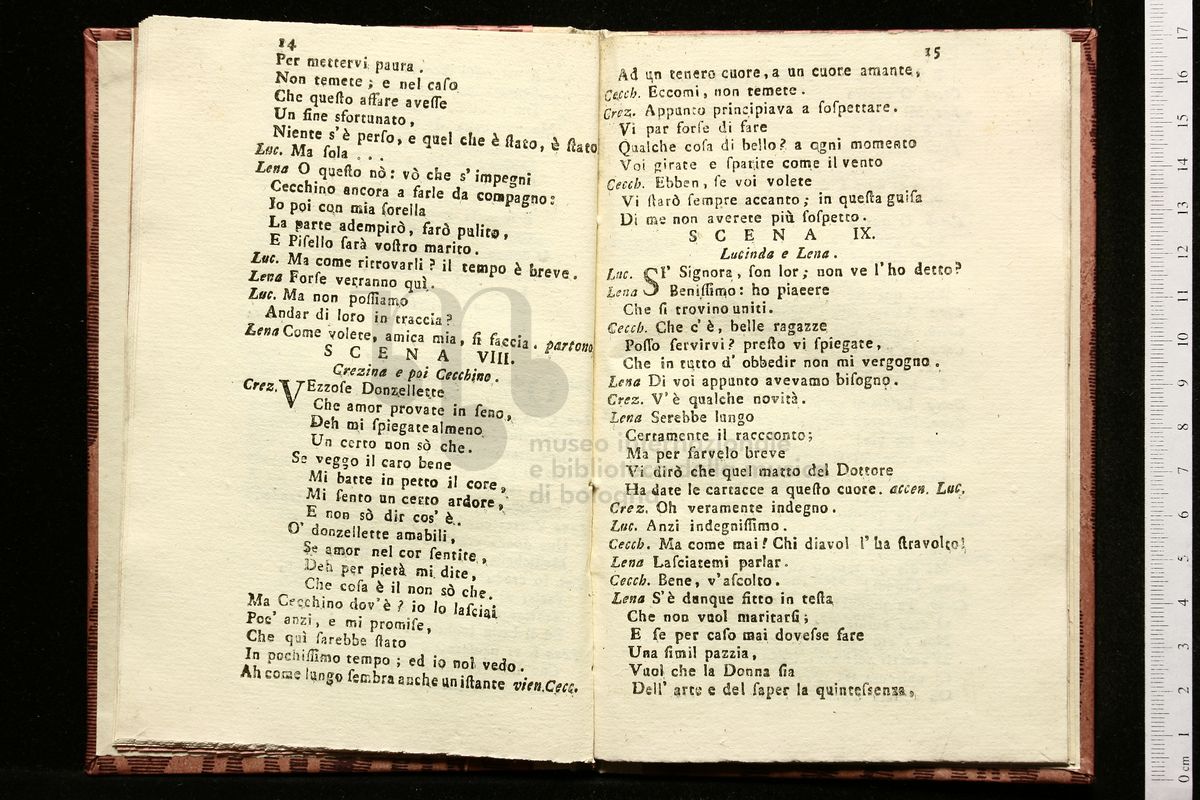 14
Per mettervi paura.
Non temete; e nel caſo
Che queſto affare aveſſe
Un fine sfortunato,
Niente s'è perſo, e quel che è ſtato, è ſtato
Luc. Ma ſola . . .
Lena O queſto nò: vò che s'impegni
Cecchino ancora a farle da compagno:
Io poi con mia ſorella
La parte adempirò, farò pulito,
E Piſello ſarà voſtro marito.
Luc. Ma come ritrovarli? il tempo è breve.
Lena Forſe verranno quì.
Luc. Ma non poſſiamo
Andar di loro in traccia?
Lena Come volete, amica mia, ſi faccia. partono
S C E N A VIII.
Crezina e poi Cecchino.
Crez. VEzzoſe Donzellette
Che amor provate in ſeno,
Deh mi ſpiegate almeno
Un certo non sò che.
Se veggo il caro bene
Mi batte in petto il core,
Mi ſento un certo ardore,
E non sò dir cos'è.
O' donzellette amabili,
Se amor nel cor ſentite,
Deh per pietà mi dite,
Che coſa è il non sò che.
Ma Cecchino dov'è? io lo laſciai
Poc' anzi, e mi promiſe,
Che quì ſarebbe ſtato
In pochiſſimo tempo; ed io nol vedo.
Ah come lungo ſembra anche un iſtante vien.Cecc.
15
Ad un tenero cuore, a un cuore amante,
Cecch. Eccomi, non temete.
Crez. Appunto principiava a ſoſpettare.
Vi par forſe di fare
Qualche coſa di bello? a ogni momento
Voi girate e ſparite come il vento
Cecch. Ebben, ſe voi volete
Vi ſtarò ſempre accanto; in queſta guiſa
Di me non averete più ſoſpetto.
S C E N A IX.
Lucinda e Lena.
Luc. SI' Signora, ſon lor; non ve l'ho detto?
Lena Beniſſimo: ho piaeere
Che ſi trovino uniti.
Cecch. Che c'è, belle ragazze
Poſſo ſervirvi? preſto vi ſpiegate,
Che in tutto d' obbedir non mi vergogno.
Lena Di voi appunto avevamo biſogno.
Crez. V'è qualche novità.
Lena Serebbe lungo
Certamente il raccconto;
Ma per farvelo breve
Vi dirò che quel matto del Dottore
Ha date le cartacce a queſto cuore. accen. Luc.
Crez. Oh veramente indegno.
Luc. Anzi indegniſſimo.
Cecch. Ma come mai! Chi diavol l'ha ſtravolto!
Lena Laſciatemi parlar.
Cecch. Bene, v'aſcolto.
Lena S'è dunque fitto in teſta
Che non vuol maritarſi;
E ſe per caſo mai doveſse fare
Una ſimil pazzia,
Vuol che la Donna ſia
Dell' arte e del ſaper la quinteſsenza,
museo internazionale
e biblioteca della musica
di bologna